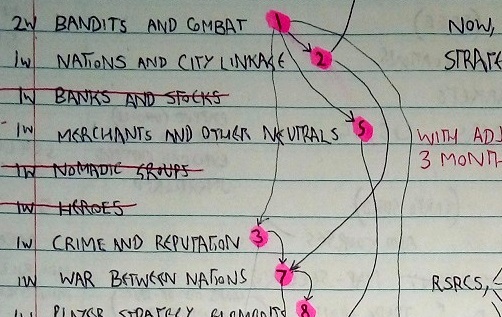 2W BANDITS AND COMBAT 1 NOW,
1W NATIONS AND CITY LINKAGE 2 STRATE
1W BANKS AND STOCKS
1W MERCHANTS AND OTHER NEUTRALS 5 WITH ADJ
1W NOMADIC GROUPS 3 MONTH
1W HEROES
1W CRIME AND REPUTATION 3
1W WAR BETWEEN NATIONS 7 RSRCS,
1W PLAYER STRATEGY ELEMENTS 8